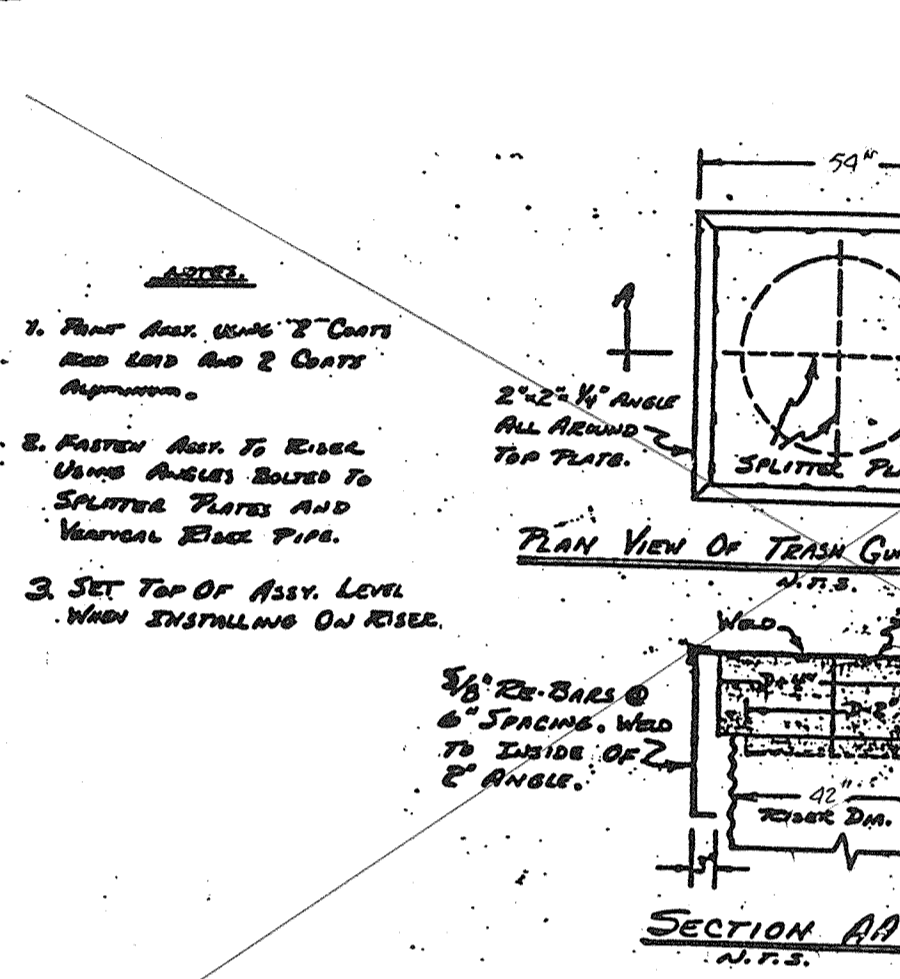 NOTES.
1. PAINT ASSY. USING 2 COATS
RED LEAD AND 2 COATS
ALUMINUM.
2. FASTEN ASSY. TO RISER
USING ANGLES BOLTED TO
SPLITTER PLATES AND
VERTICAL RISER PIPE.
3. SET TOP OF ASSY. LEVEL
WHEN INSTALLING ON RISER.
54"
A
2"x2"x1/4" ANGLE
ALL AROUND
TOP PLATE.
SPLITTER PLA
PLAN VIEW OF TRASH GU
N.T.S.
WELD
5/8" RE-BARS @
6" SPACING. WELD
TO INSIDE OF
2" ANGLE.
D+4"
D-2"
42"
RISER DIA.
SECTION AA
N.T.S.